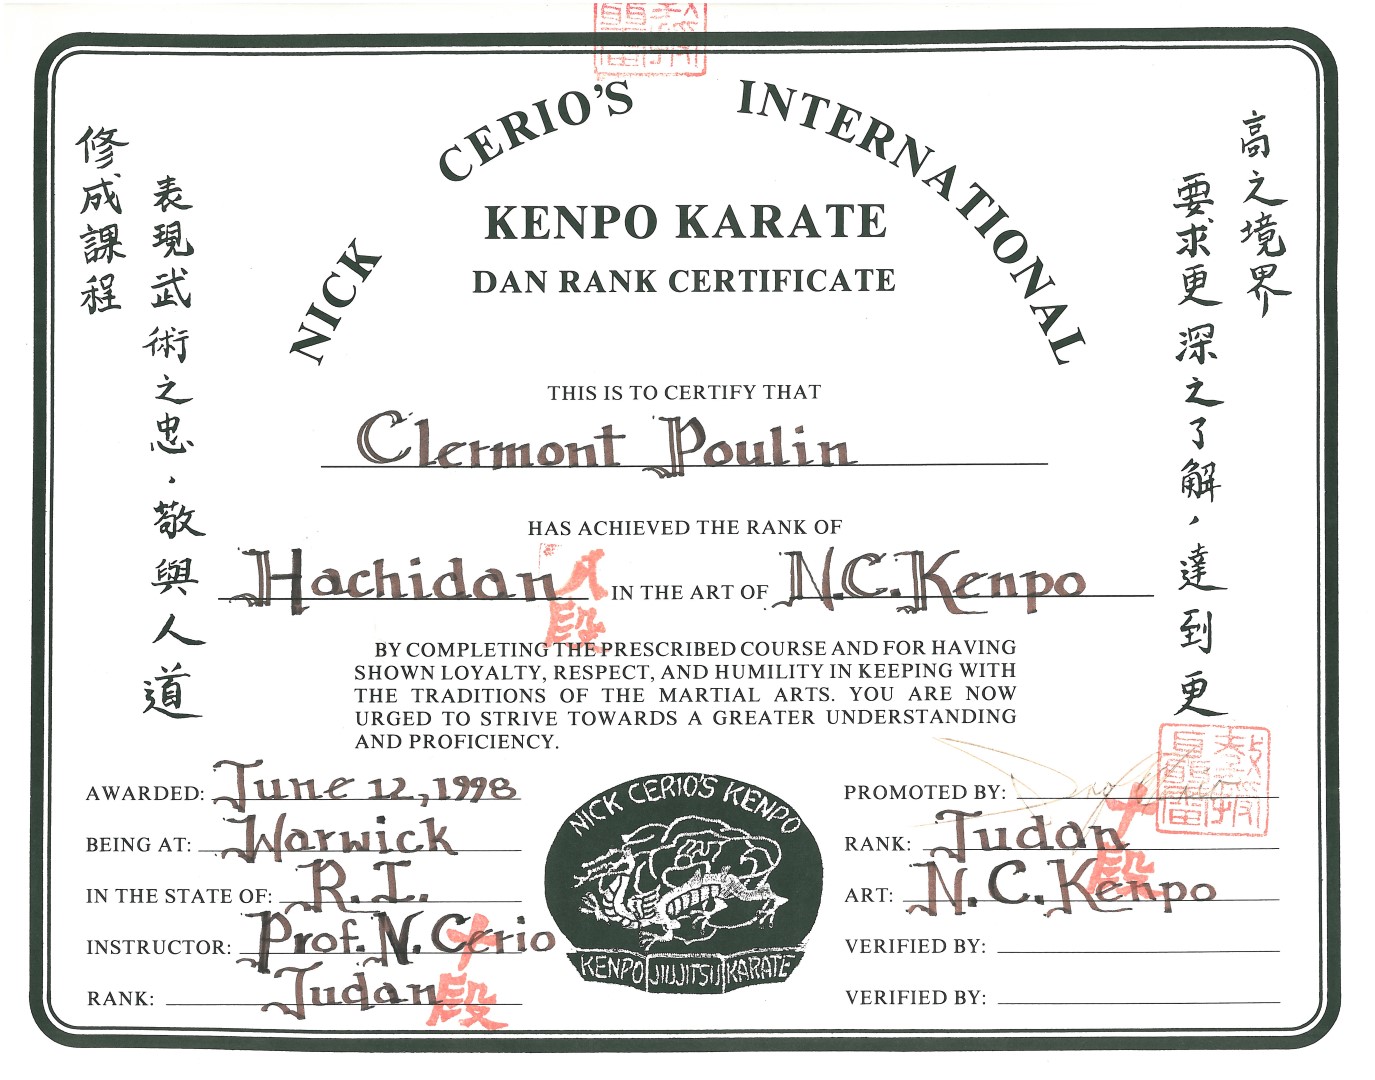 NICK CERIO'S INTERNATIONAL
KENPO KARATE
DAN RANK CERTIFICATE
修成課程
表現武術之忠，敬與人道
要求更深之了解，達到更
高之境界
THIS IS TO CERTIFY THAT
Clermont Poulin
HAS ACHIEVED THE RANK OF
Hachidan 八段 IN THE ART OF N.C. Kenpo
BY COMPLETING THE PRESCRIBED COURSE AND FOR HAVING
SHOWN LOYALTY, RESPECT, AND HUMILITY IN KEEPING WITH
THE TRADITIONS OF THE MARTIAL ARTS. YOU ARE NOW
URGED TO STRIVE TOWARDS A GREATER UNDERSTANDING
AND PROFICIENCY.
AWARDED: June 12, 1998
BEING AT: Warwick
IN THE STATE OF: R.I.
INSTRUCTOR: Prof. N. Cerio
RANK: Judan 十段
NICK CERIO'S KENPO
KENPO JIUJITSU KARATE
PROMOTED BY:
RANK: Judan 十段
ART: N.C. Kenpo
VERIFIED BY:
VERIFIED BY: